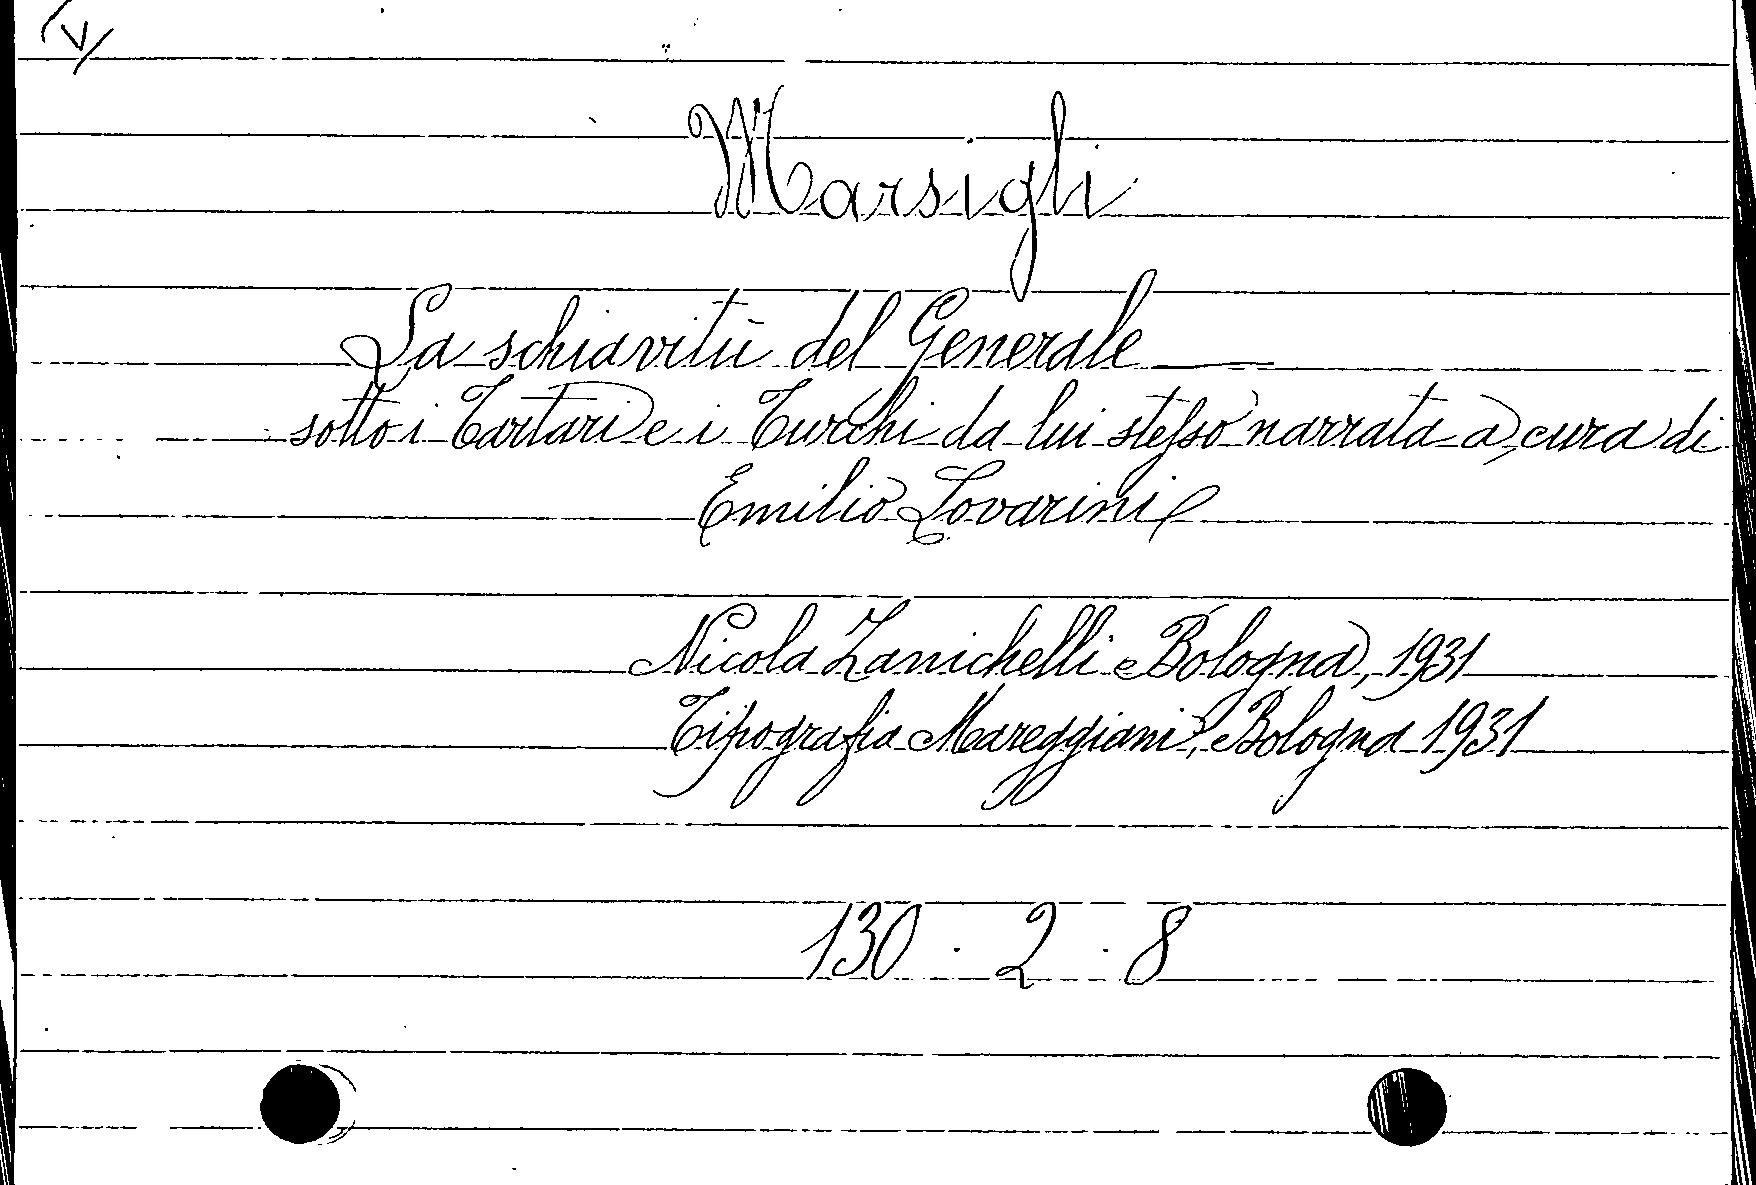 Marsigli
La schiavitù del Generale —
sotto i Tartari e i Turchi da lui stesso narrata a cura di
Emilio Lovarini
Nicola Zanichelli Bologna, 1931
Tipografia Mareggiani, Bologna 1931
130 . 2 . 8